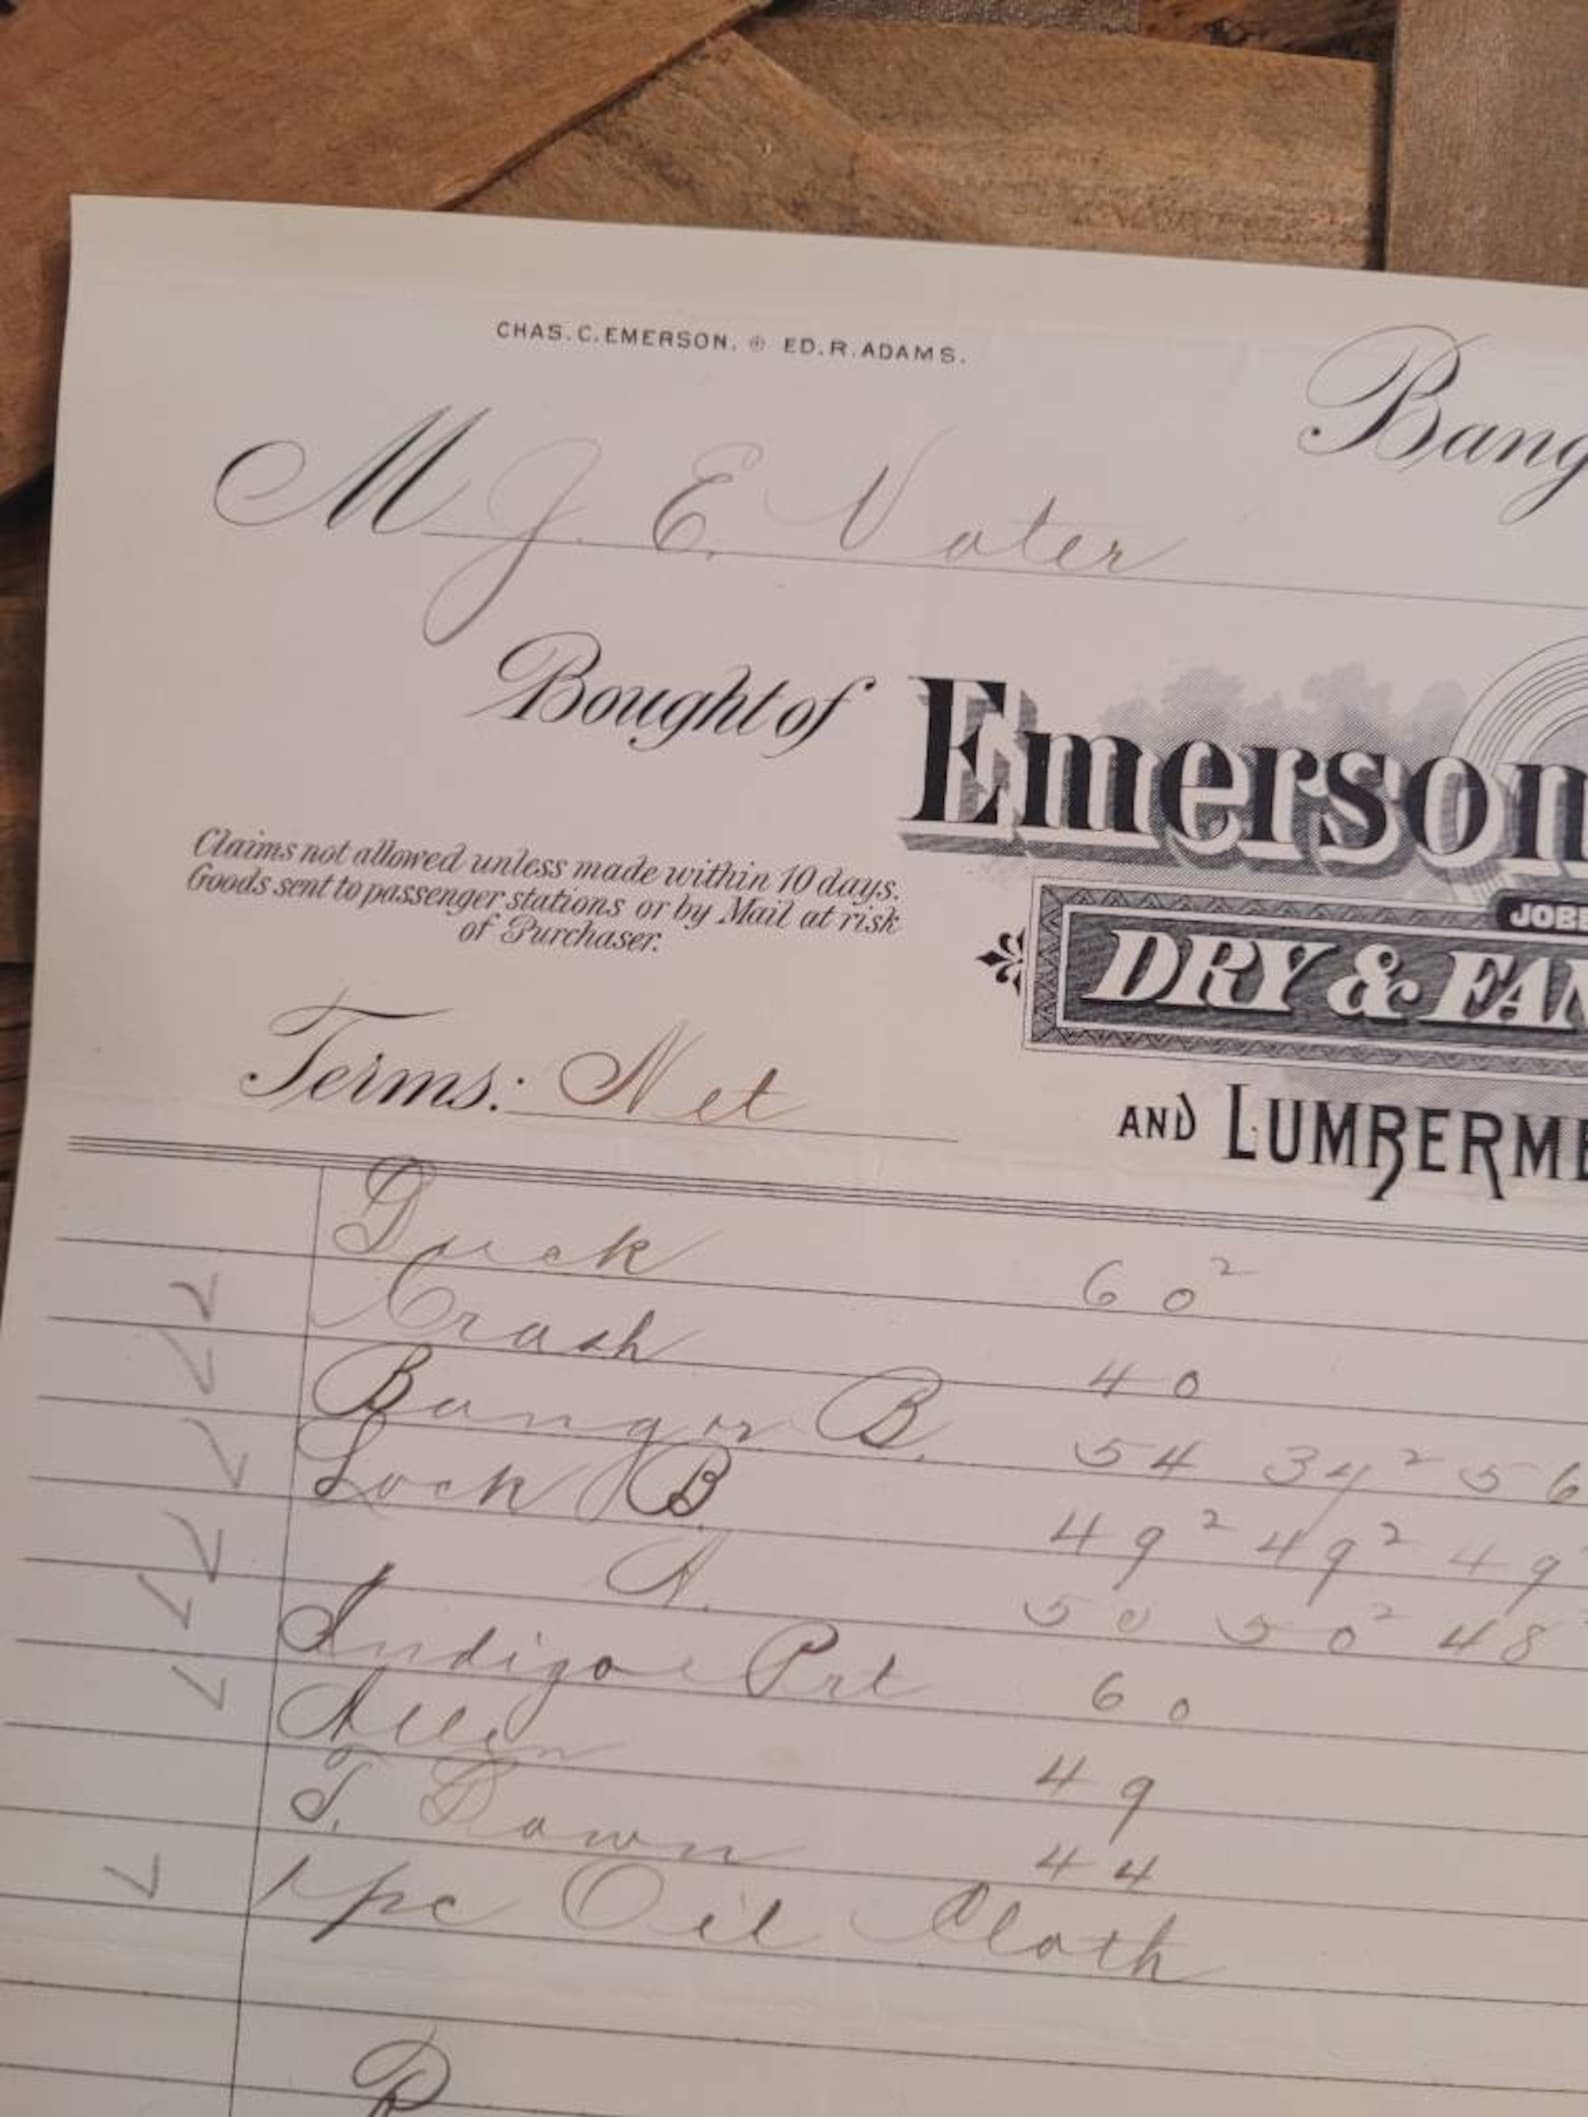 CHAS. C. EMERSON. ED. R. ADAMS.
Bang
M J. E. Vater
Bought of Emerson
Claims not allowed unless made within 10 days.
Goods sent to passenger stations or by Mail at risk
of Purchaser.
JOBB
DRY & FAN
Terms: Net
AND LUMBERME
Duck 60²
Crash 40
Bangor B. 54 34² 56
Lock B. 49² 49² 49
A. 50 50² 48
Indigo Prt 60
Allen 49
T. Down 44
1 pc Oil Cloth